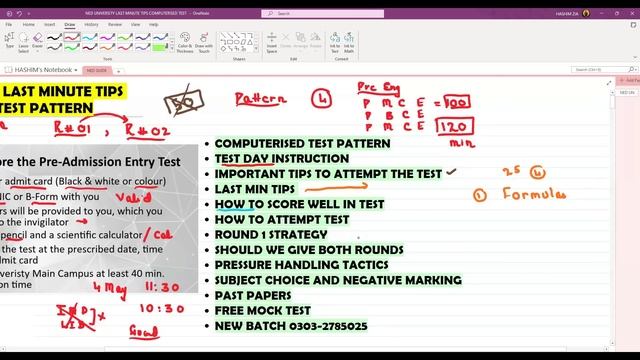 NED UNIVERSITY LAST MINUTE TIPS COMPUTERISED TEST - OneNote
HASHIM ZIA
File Home Insert Draw History Review View Help
HASHIM's Notebook
NED GUIDE
LAST MINUTE TIPS
TEST PATTERN
R#01 R#02
50
Pattern 4
Pre Eng
P M C E = 100
P B C E
P M C E 120
min
ore the Pre-Admission Entry Test
r admit card (Black & white or colour)
NIC or B-Form with you Valid
rs will be provided to you, which you
to the invigilator
pencil and a scientific calculator / Cal
the test at the prescribed date, time
dmit card
iveristy Main Campus at least 40 min.
on time
4 May 11:30
10:30
Goal
• COMPUTERISED TEST PATTERN
• TEST DAY INSTRUCTION
• IMPORTANT TIPS TO ATTEMPT THE TEST
• LAST MIN TIPS
• HOW TO SCORE WELL IN TEST
• HOW TO ATTEMPT TEST
• ROUND 1 STRATEGY
• SHOULD WE GIVE BOTH ROUNDS
• PRESSURE HANDLING TACTICS
• SUBJECT CHOICE AND NEGATIVE MARKING
• PAST PAPERS
• FREE MOCK TEST
• NEW BATCH 0303-2785025
25 4
1 Formulas